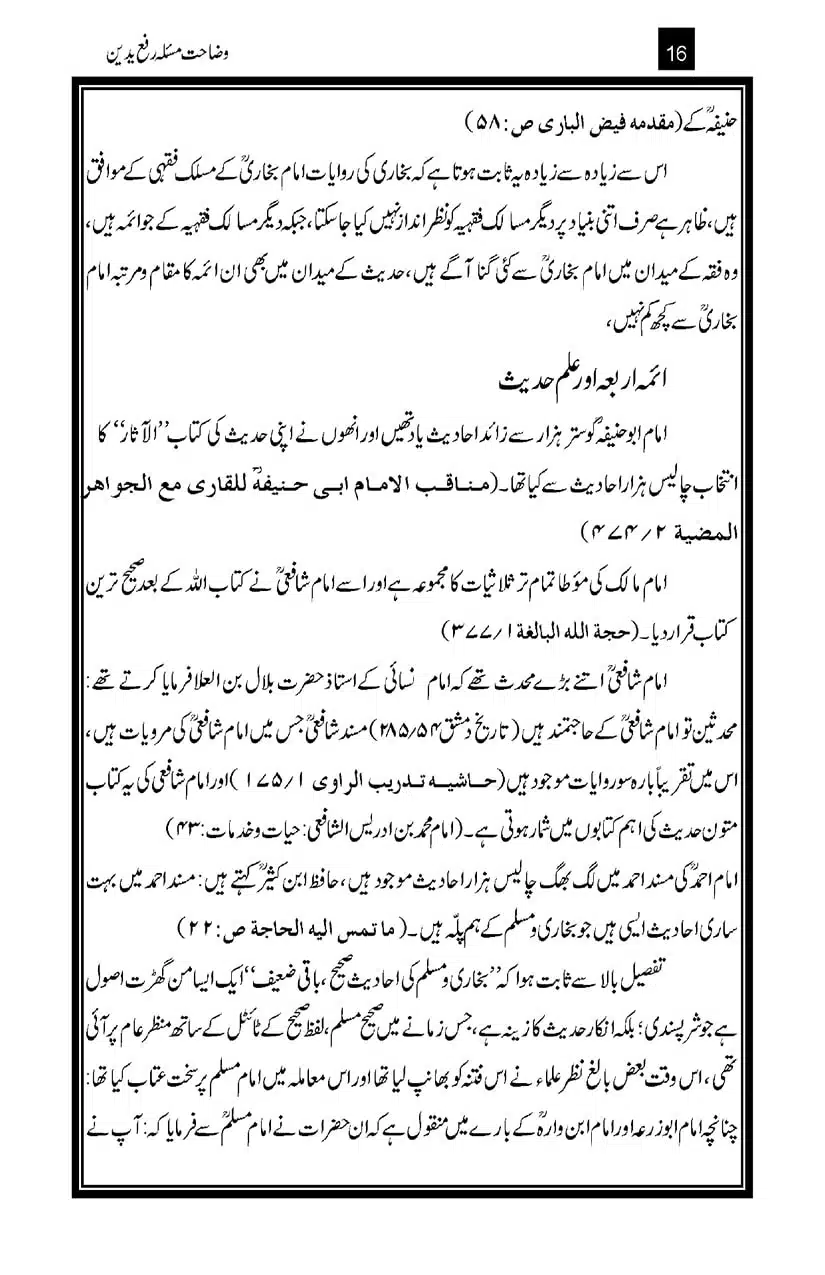 وضاحت مسئلہ رفع یدین
16
حنیفہؒ کے (مقدمہ فیض الباری ص:۵۸)
اس سے زیادہ سے زیادہ یہ ثابت ہوتا ہے کہ بخاری کی روایات امام بخاریؒ کے مسلک فقہی کے موافق
ہیں، ظاہر ہے صرف اتنی بنیاد پر دیگر مسالک فقہیہ کو نظر انداز نہیں کیا جاسکتا، جبکہ دیگر مسالک فقہیہ کے جو ائمہ ہیں،
وہ فقہ کے میدان میں امام بخاریؒ سے کئی گنا آگے ہیں، حدیث کے میدان میں بھی ان ائمہ کا مقام و مرتبہ امام
بخاریؒ سے کچھ کم نہیں،
ائمہ اربعہ اور علم حدیث
امام ابوحنیفہؒ کو ستر ہزار سے زائد احادیث یاد تھیں اور انھوں نے اپنی حدیث کی کتاب ’’الآثار‘‘ کا
انتخاب چالیس ہزار احادیث سے کیا تھا۔ (مناقب الامام ابی حنیفۃؒ للقاری مع الجواھر
المضیۃ ۲/۴۷۴)
امام مالک کی مؤطا تمام تر ثلاثیات کا مجموعہ ہے اور اسے امام شافعیؒ نے کتاب اللہ کے بعد صحیح ترین
کتاب قرار دیا۔ (حجۃ اللہ البالغۃ ۱/۳۷۷)
امام شافعیؒ اتنے بڑے محدث تھے کہ امام نسائی کے استاذ حضرت ہلال بن العلا فرمایا کرتے تھے:
محدثین تو امام شافعیؒ کے حاجتمند ہیں (تاریخ دمشق ۵۴/۲۸۵) مسند شافعیؒ جس میں امام شافعیؒ کی مرویات ہیں،
اس میں تقریباً بارہ سو روایات موجود ہیں (حاشیہ تدریب الراوی ۱/۱۷۵) اور امام شافعی کی یہ کتاب
متون حدیث کی اہم کتابوں میں شمار ہوتی ہے۔ (امام محمد بن ادریس الشافعی: حیات وخدمات: ۴۳)
امام احمدؒ کی مسند احمد میں لگ بھگ چالیس ہزار احادیث موجود ہیں، حافظ ابن کثیرؒ کہتے ہیں: مسند احمد میں بہت
ساری احادیث ایسی ہیں جو بخاری و مسلم کے ہم پلّہ ہیں۔ (ما تمس الیہ الحاجۃ ص:۲۲)
تفصیل بالا سے ثابت ہوا کہ ’’بخاری و مسلم کی احادیث صحیح، باقی ضعیف‘‘ ایک ایسا من گھڑت اصول
ہے جو شر پسندی؛ بلکہ انکار حدیث کا زینہ ہے، جس زمانے میں صحیح مسلم، لفظ صحیح کے ٹائٹل کے ساتھ منظر عام پر آئی
تھی، اس وقت بعض بالغ نظر علماء نے اس فتنہ کو بھانپ لیا تھا اور اس معاملہ میں امام مسلم پر سخت عتاب کیا تھا:
چنانچہ امام ابوزرعہ اور امام ابن وارہؒ کے بارے میں منقول ہے کہ ان حضرات نے امام مسلمؒ سے فرمایا کہ: آپ نے